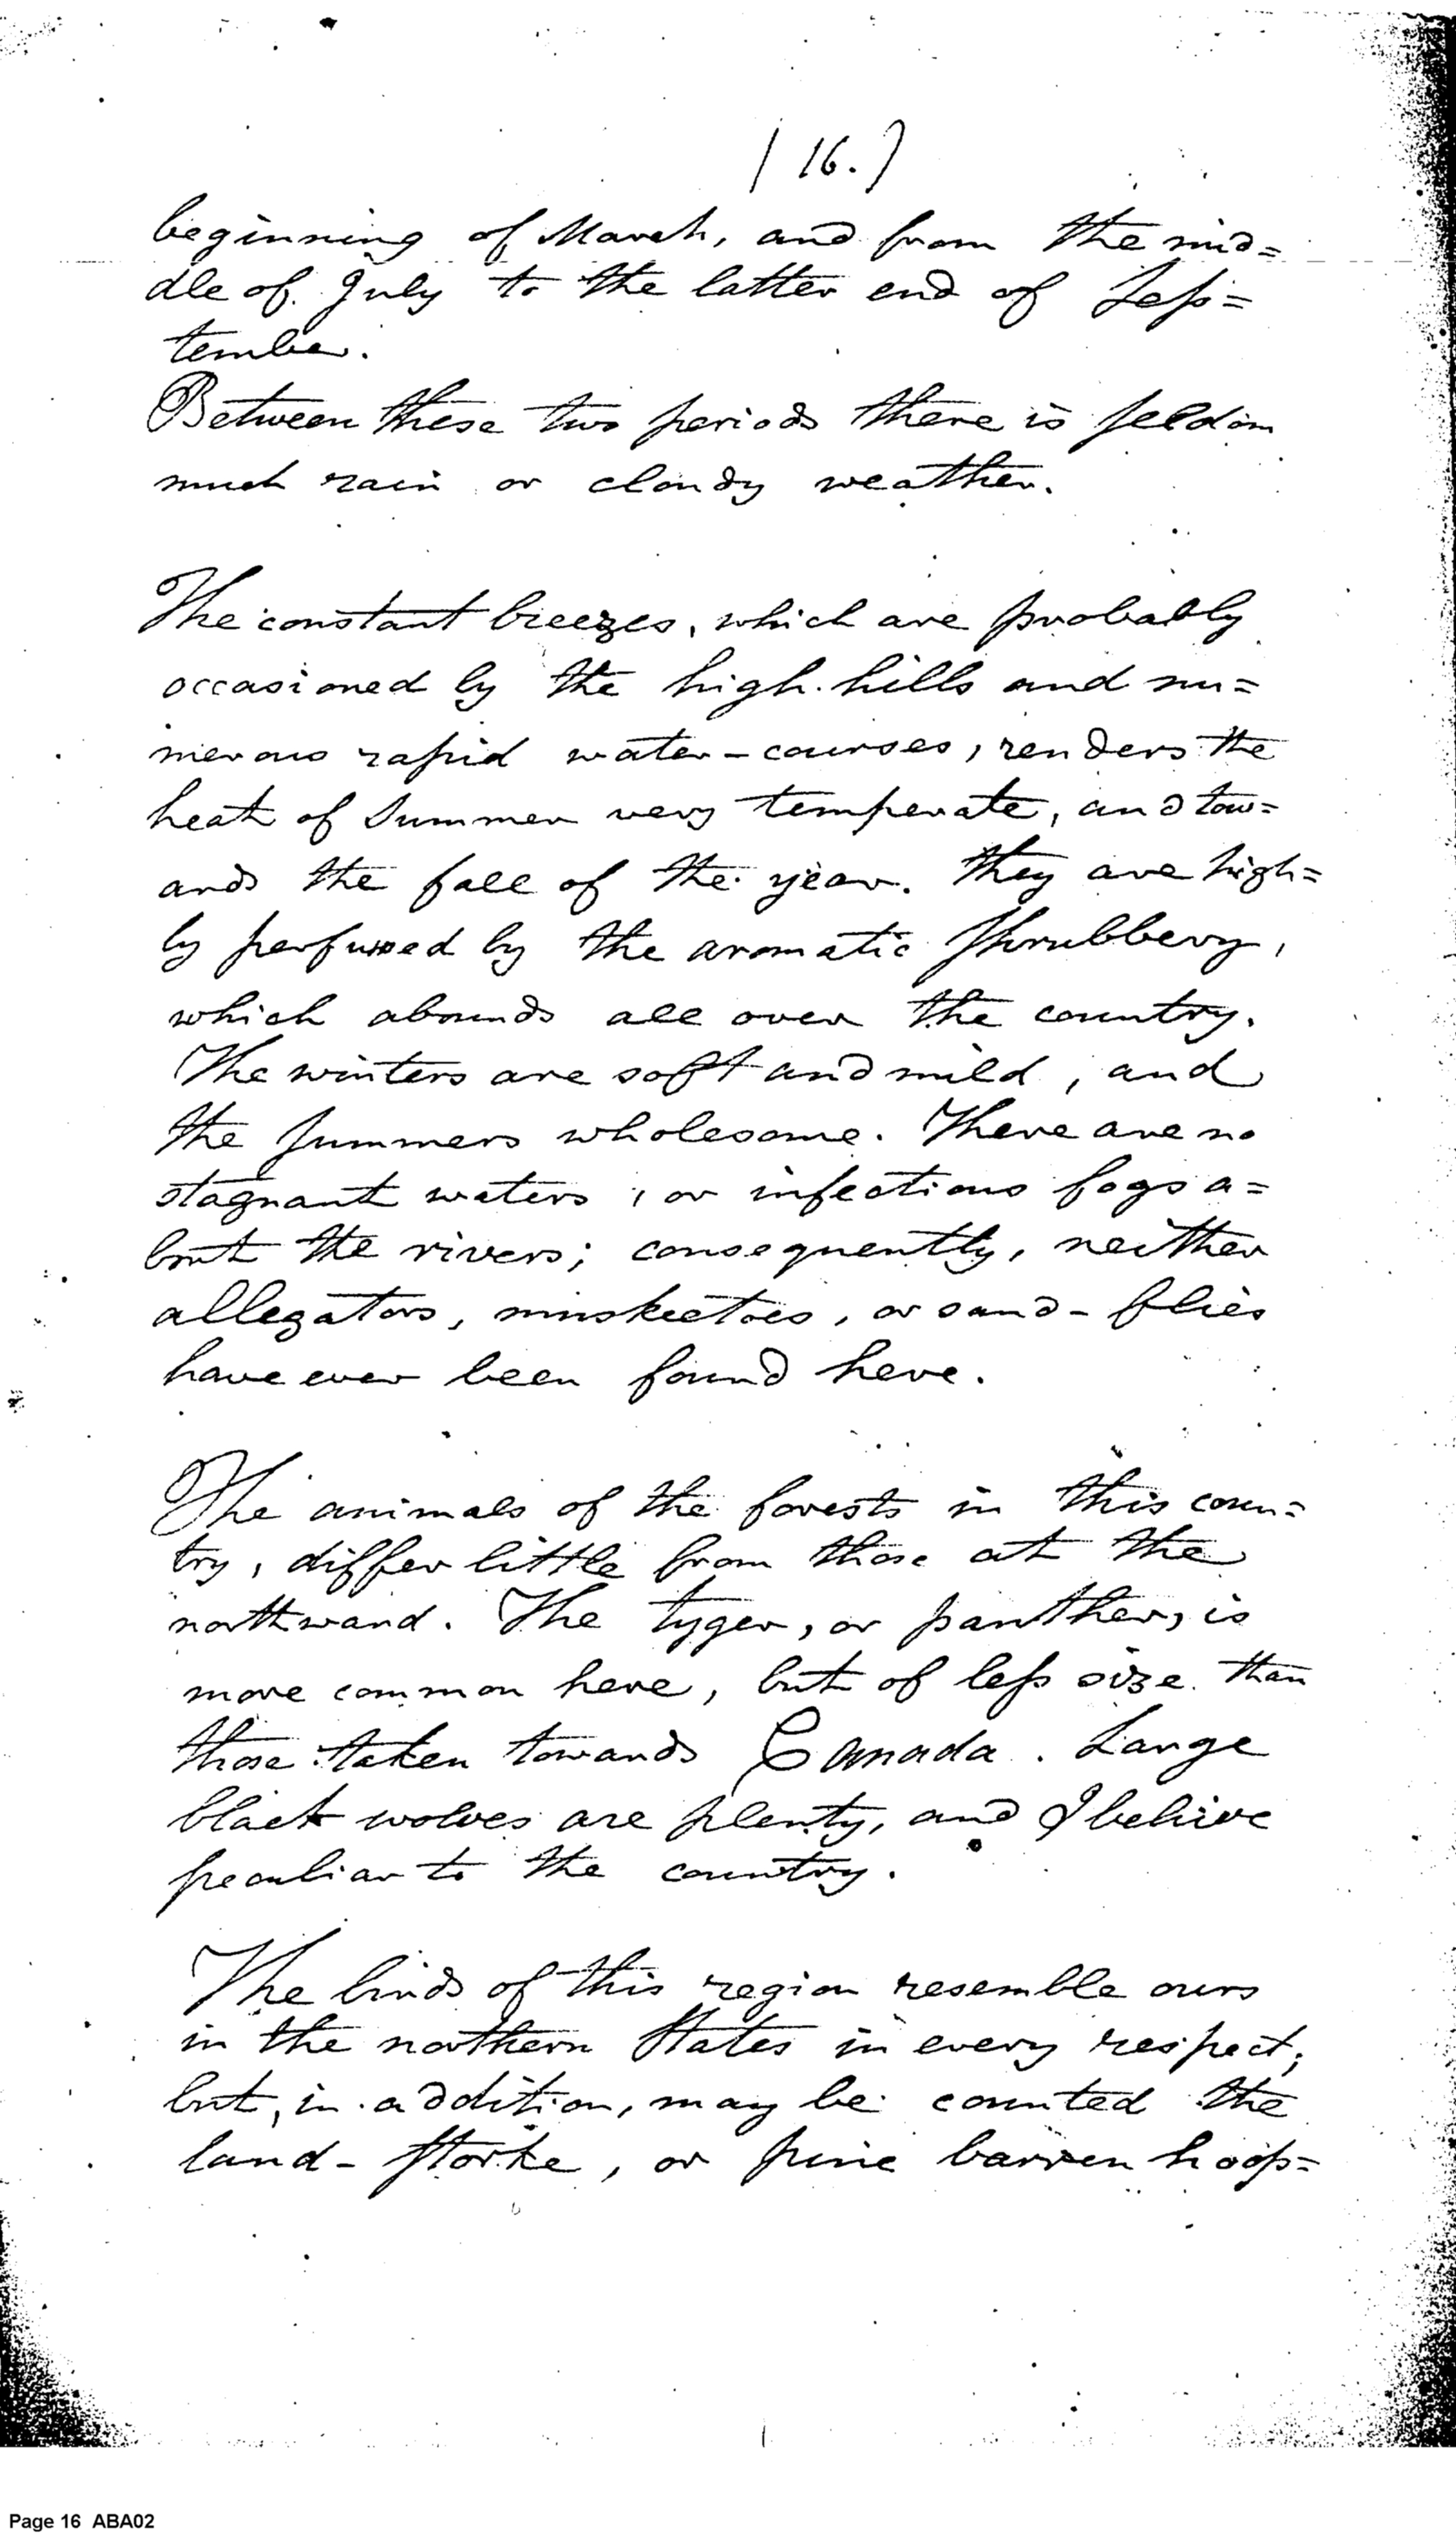 ( 16. )
beginning of March, and from the mid=
dle of July to the latter end of Sep=
tember.
Between these two periods there is seldom
much rain or cloudy weather.
The constant breezes, which are probably
occasioned by the high hills and nu=
merous rapid water-courses, renders the
heat of Summer very temperate, and tow=
ards the fall of the year. they are high=
ly perfumed by the aromatic shrubbery,
which abounds all over the country.
The winters are soft and mild, and
the summers wholesome. There are no
stagnant waters, or infectious fogs a=
bout the rivers; consequently, neither
allegators, muskeetoes, or sand-flies
have ever been found here.
The animals of the forests in this coun=
try, differ little from those at the
northward. The tyger, or panther, is
more common here, but of less size than
those taken towards Canada. Large
black wolves are plenty, and I believe
peculiar to the country.
The birds of this region resemble ours
in the northern States in every respect;
but, in addition, may be counted the
land-storke, or pine barren hoop=
Page 16 ABA02